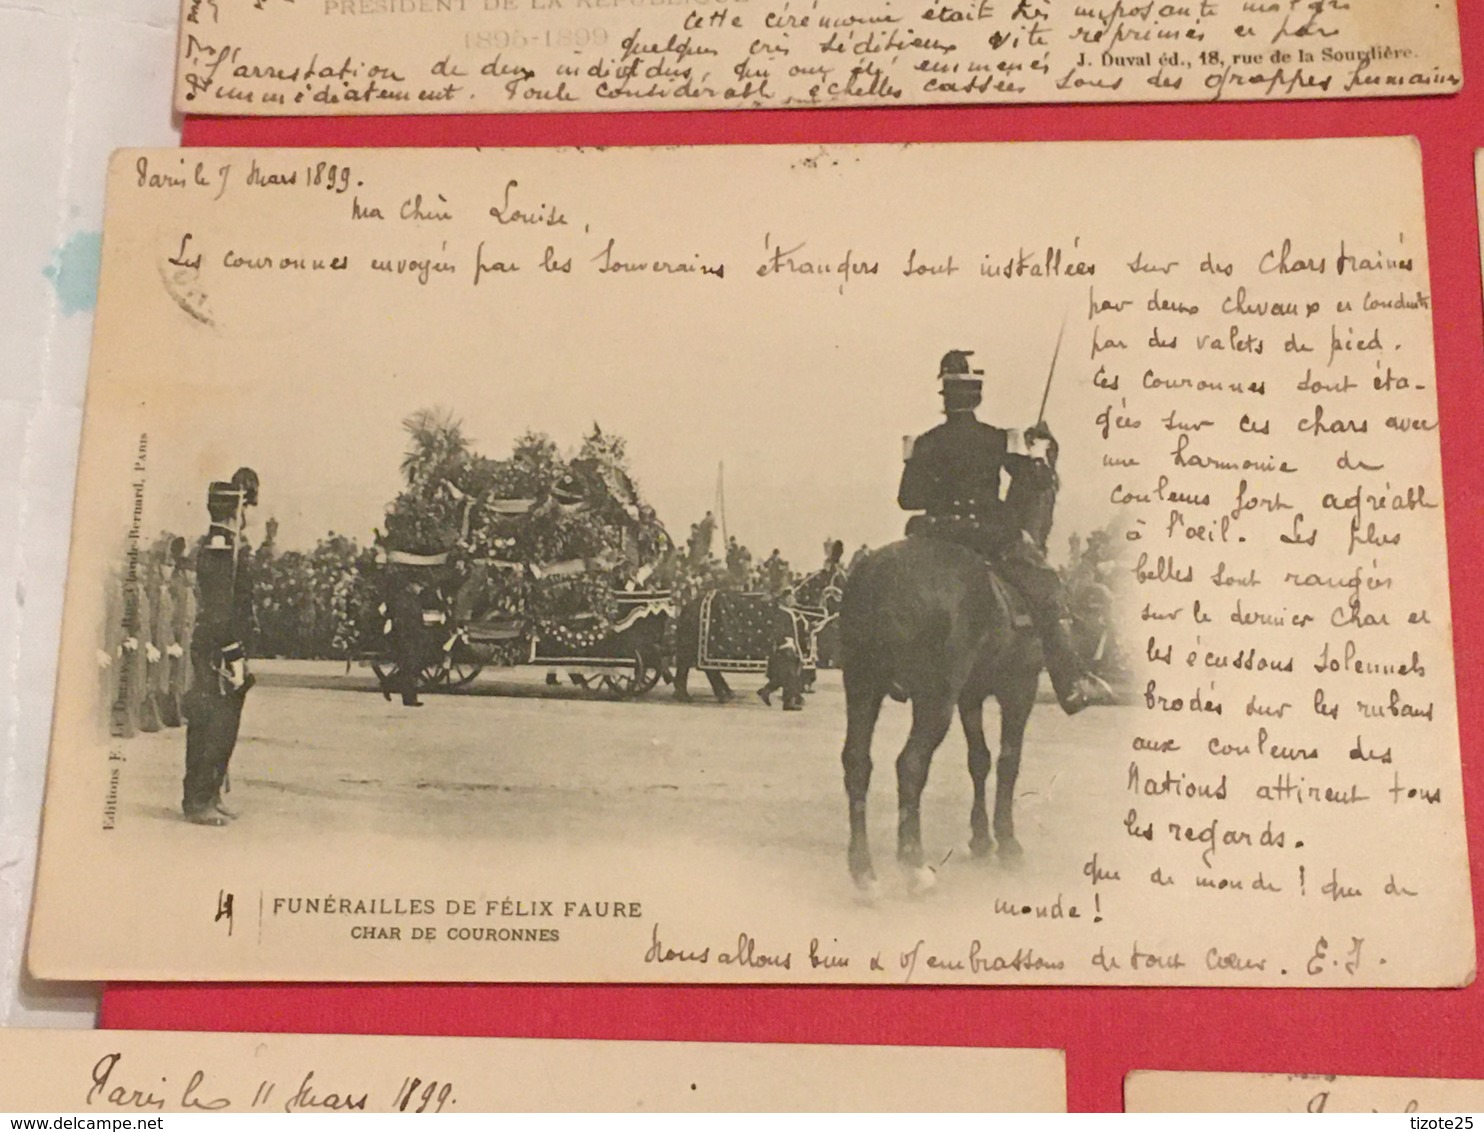 PRÉSIDENT DE LA RÉPUBLIQUE
1895-1899
Cette cérémonie était très imposante malgré
quelques cris séditieux vite réprimés et par
J. Duval éd., 18, rue de la Sourdière.
l'arrestation de deux individus, qui ont été emmenés
immédiatement. Foule considérable, échelles cassées sous des grappes humaines
Paris le 7 Mars 1899.
Ma chère Louise,
Les couronnes envoyées par les Souverains étrangers sont installées sur des chars traînés
par deux chevaux et conduits
par des valets de pied.
Ces couronnes sont éta-
gées sur ces chars avec
une harmonie de
couleurs fort agréable
à l'oeil. Les plus
belles sont rangées
sur le dernier char et
les écussons solennels
brodés sur les rubans
aux couleurs des
Nations attirent tous
les regards.
que de monde ! que de
monde !
Nous allons bien & v/ embrassons de tout coeur. E. J.
Editions F. Rue Claude-Bernard, PARIS
4
FUNÉRAILLES DE FÉLIX FAURE
CHAR DE COURONNES
Paris le 11 Mars 1899.
delcampe.net
tizote25